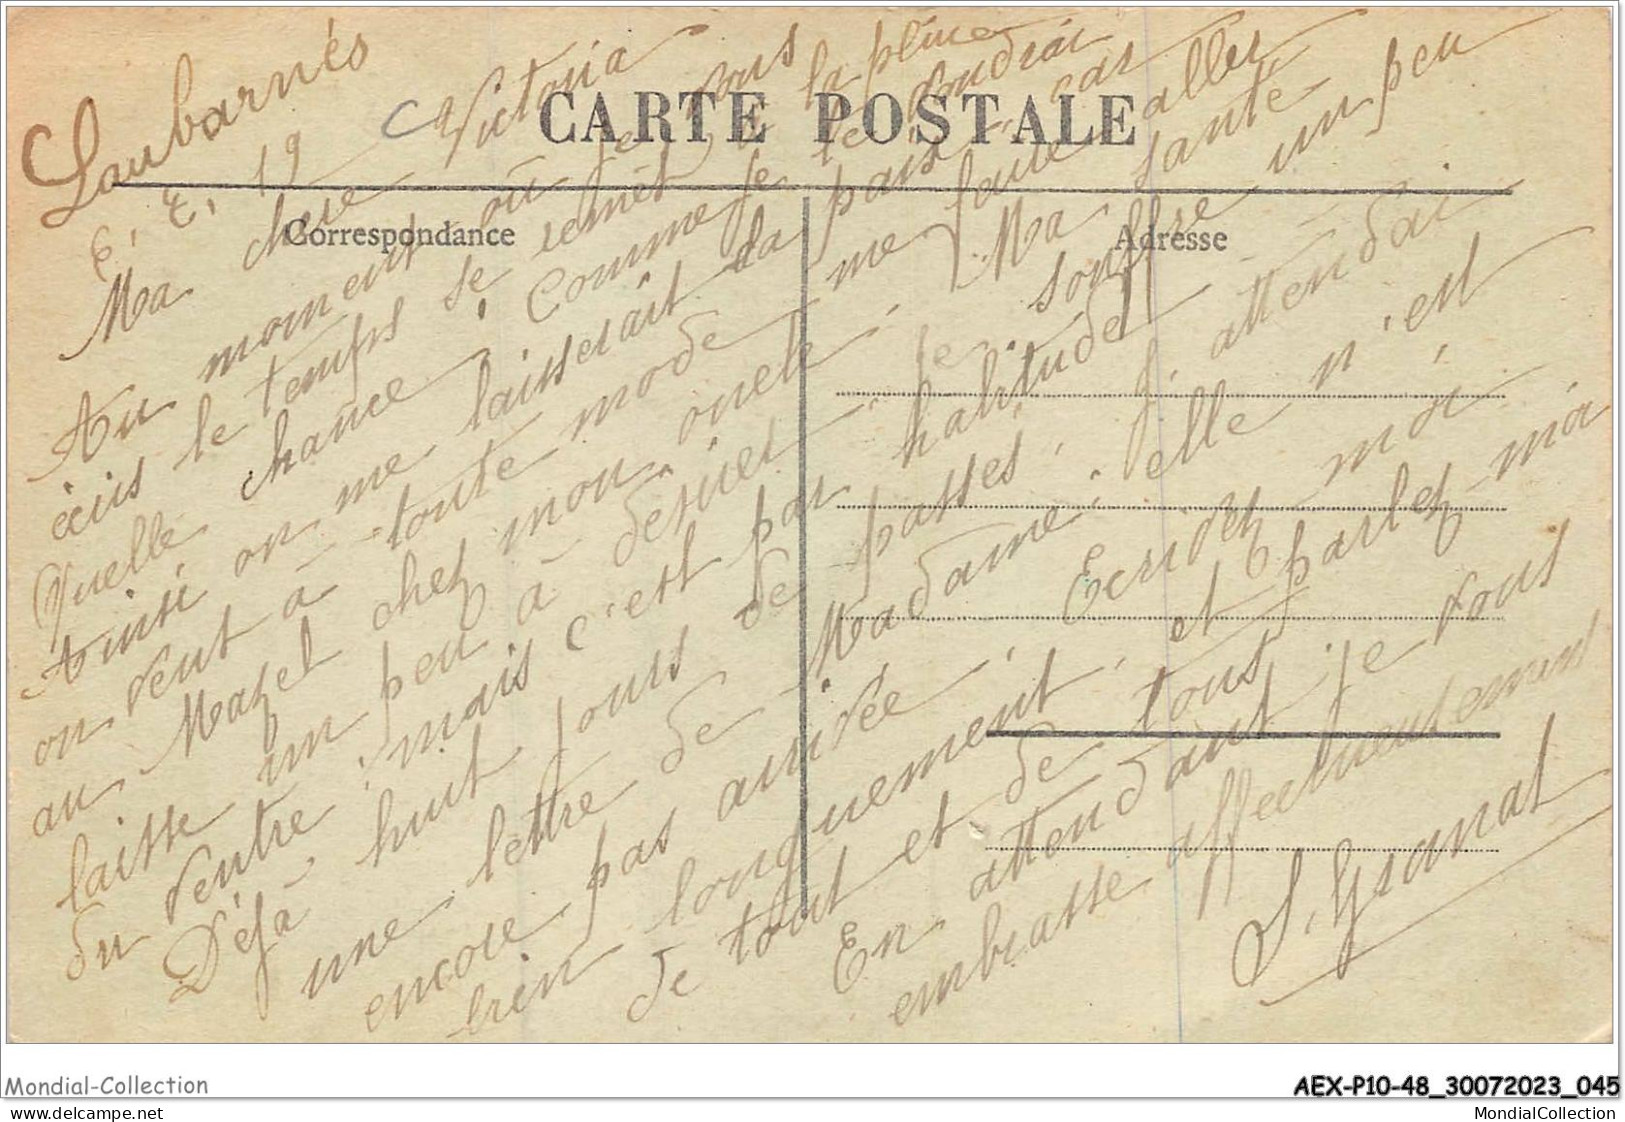 Laubarnès
6, 2, 19
CARTE POSTALE
Correspondance
Adresse
Ma chere Victoria
Au moment où je vous
écris le temps se remet à la pluie
Quelle chance! Comme je le voudrai
Ainsi on me laisserait la paix, car
on veut à toute mode me faire aller
au Mazel chez mon oncle. Ma santé
laisse un peu à désirer. je souffre un peu
du ventre; mais c'est par habitude
Déjà huit jours de passés. J'attendai
une lettre de Madame; elle n'est
encore pas arrivée. Ecrivez moi
bien longuement, et parlez-moi
de tout et de tous.
En attendant je vous
embrasse affectueusement
S, Granat
Mondial-Collection
AEX-P10-48_30072023_045
delcampe.net
MondialCollection